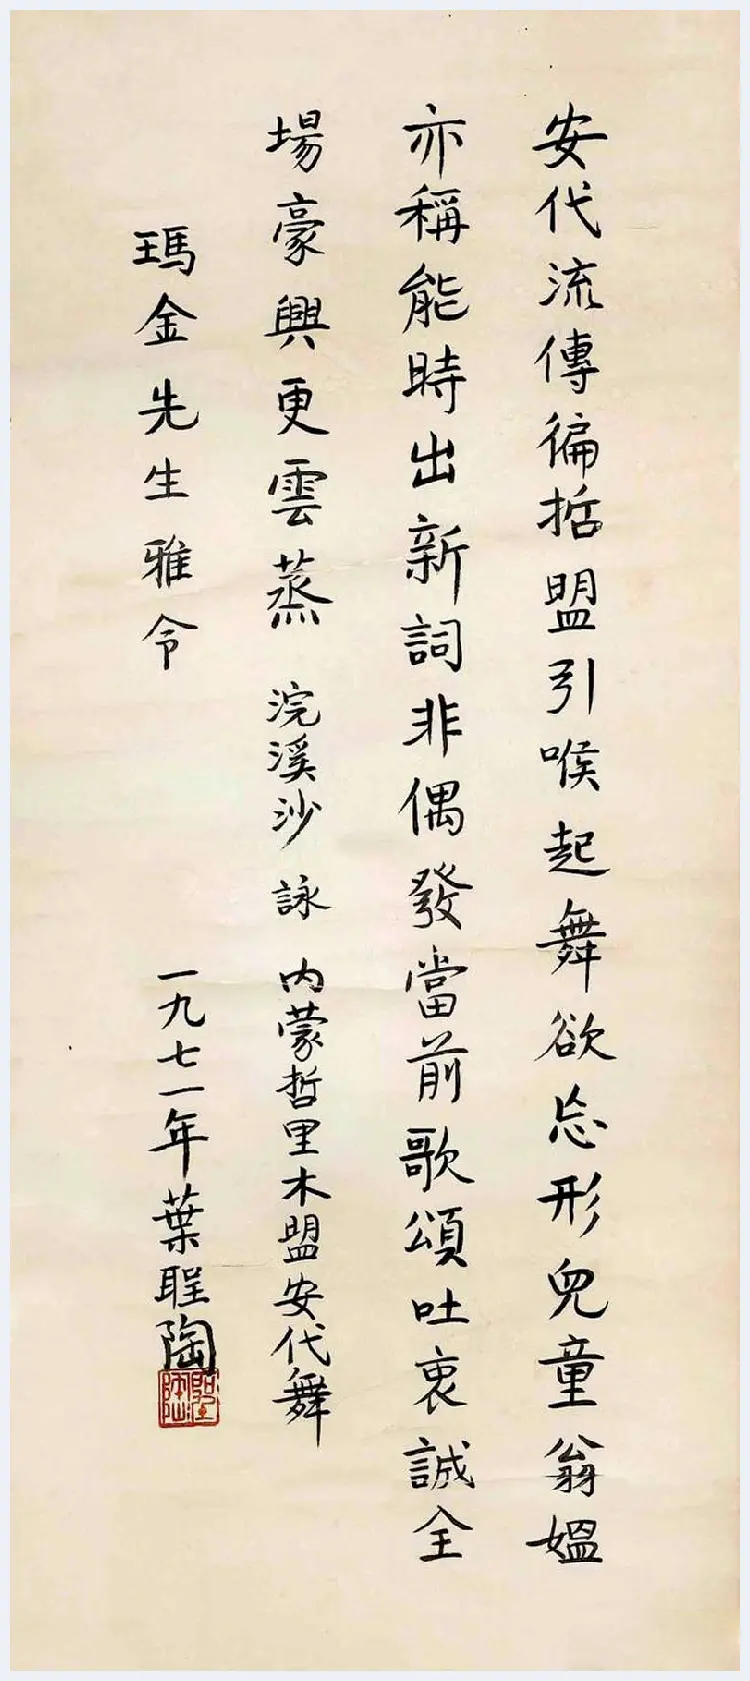 安代流傳徧哲盟引喉起舞欲忘形兒童翁媼
亦稱能時出新詞非偶發當前歌頌吐衷誠全
場豪興更雲蒸 浣溪沙 詠 內蒙哲里木盟安代舞
瑪金先生雅令
一九七一年葉聖陶
聖陶